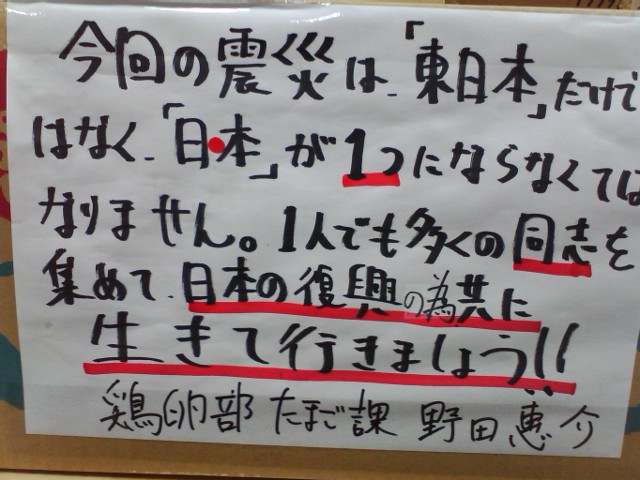 今回の震災は、「東日本」だけで
はなく、「日本」が1つにならなくては
なりません。1人でも多くの同志を
集めて、日本の復興の為共に
生きて行きましょう!!
鶏卵部 たまご課 野田恵介